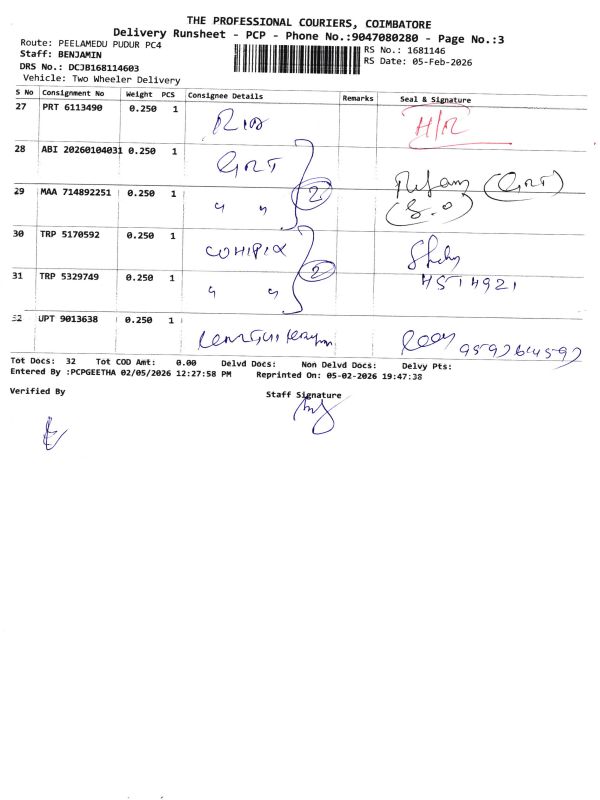 THE PROFESSIONAL COURIERS, COIMBATORE
Delivery Runsheet - PCP - Phone No.:9047080280 - Page No.:3
Route: PEELAMEDU PUDUR PC4
RS No.: 1681146
Staff: BENJAMIN
RS Date: 05-Feb-2026
DRS No.: DCJB168114603
Vehicle: Two Wheeler Delivery
S No Consignment No Weight PCS Consignee Details Remarks Seal & Signature
27 PRT 6113490 0.250 1 H/R
28 ABI 20260104031 0.250 1 GRT
(GRT)
29 MAA 714892251 0.250 1 " " 2 (S.O)
30 TRP 5170592 0.250 1
31 TRP 5329749 0.250 1 " " 2
32 UPT 9013638 0.250 1
Tot Docs: 32 Tot COD Amt: 0.00 Delvd Docs: Non Delvd Docs: Delvy Pts:
Entered By :PCPGEETHA 02/05/2026 12:27:58 PM Reprinted On: 05-02-2026 19:47:38
Verified By Staff Signature